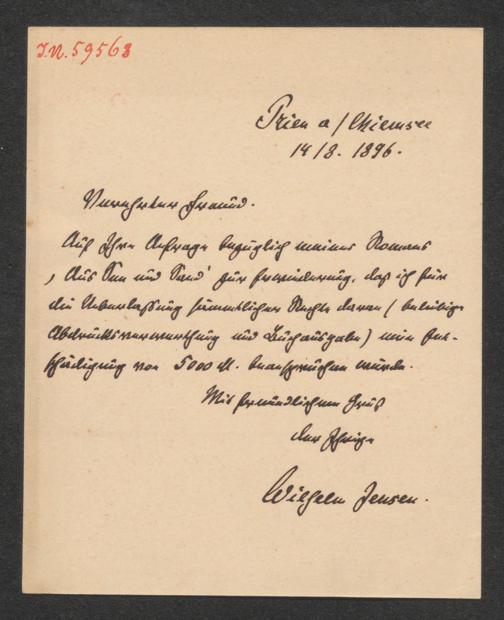 J.N. 59563
Prien a/Chiemsee
14/8. 1896.
Verehrter Freund.
Auf Ihre Anfrage bezüglich meines Romans
„Aus See und Sand" zur Erwiderung, daß ich für
die Ueberlassung sämmtlicher Rechte daran (beliebige
Abdrucksverwerthung und Buchausgabe) eine Ent-
schädigung von 5000 M. beanspruchen würde.
Mit freundlichem Gruß
der Ihrige
Wilhelm Jensen.